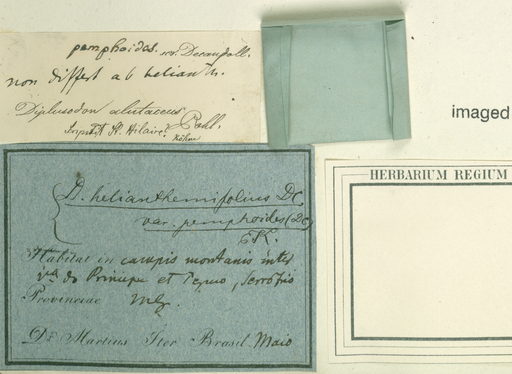 pemphoides. sec. Decandoll.
non differt ab helianth.
Diplusodon alutaceus Pohl.
St. Hilaire?
Köhne
imaged
D. helianthemifolius DC
var. pemphoides (DC)
Habitat in campis montanis inter
do Principe et Tejuco, Serro frio
Provinciae
Dr. Martius Iter Brasil. Maio
HERBARIUM REGIUM